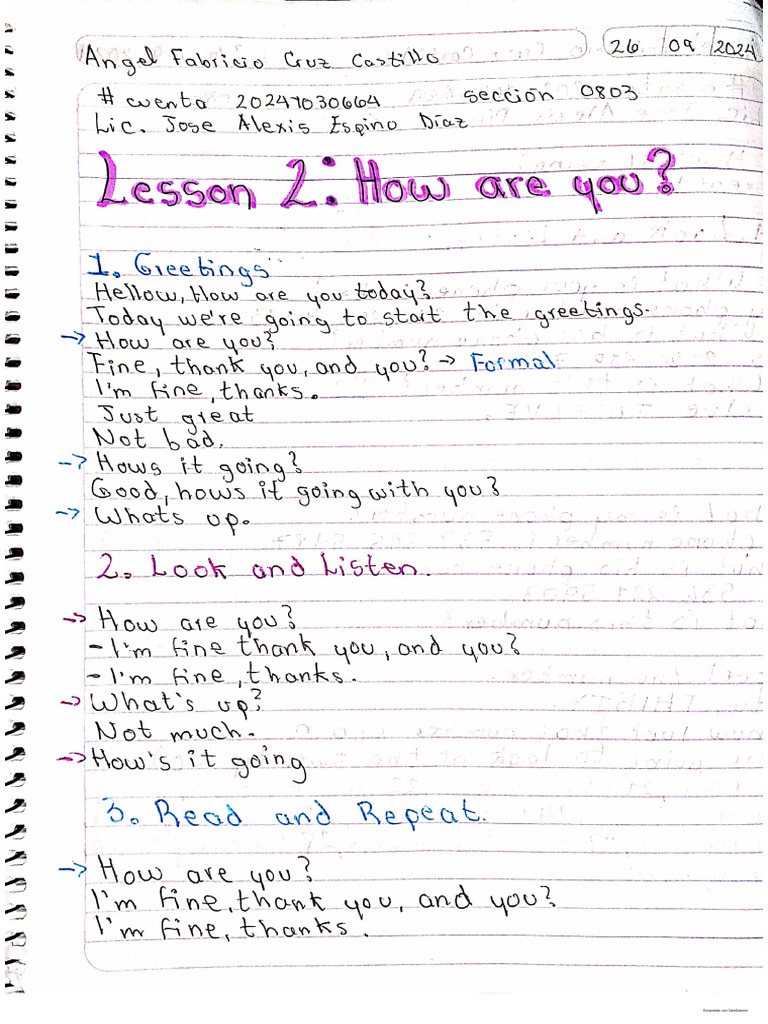 Angel Fabricio Cruz Castillo
26 09 2024
# cuenta 20241030664 sección 0803
Lic. Jose Alexis Espino Díaz
Lesson 2: How are you?
1. Greetings
Hellow, How are you today?
Today we're going to start the greetings.
→ How are you?
Fine, thank you, and you? → Formal
I'm fine, thanks.
Just great
Not bad.
→ Hows it going?
Good, hows it going with you?
→ Whats up.
2. Look and Listen.
→ How are you?
- I'm fine thank you, and you?
- I'm fine, thanks.
→ What's up?
Not much.
→ How's it going
3. Read and Repeat.
→ How are you?
I'm fine, thank you, and you?
I'm fine, thanks.
Escaneado con CamScanner